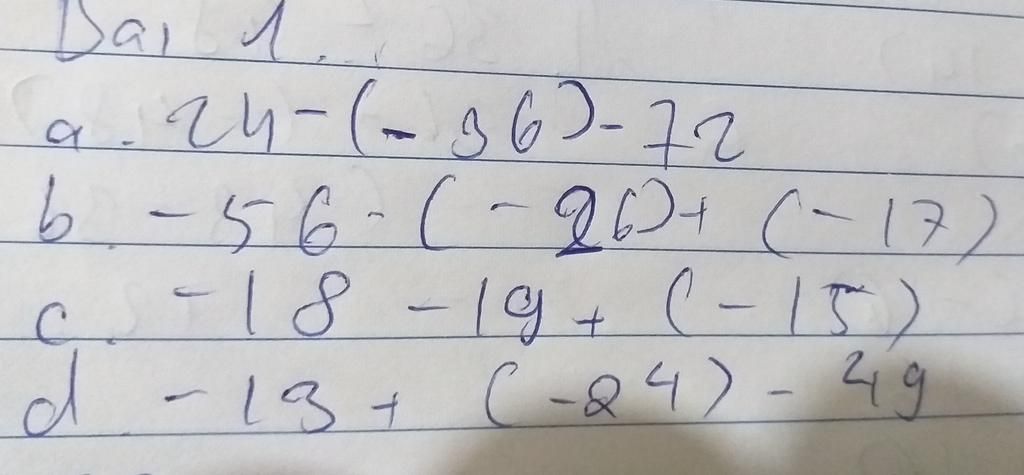 Bài 1
a. 24 - (-36) - 72
b. -56 - (-26) + (-17)
c. -18 - 19 + (-15)
d. -13 + (-24) - 49